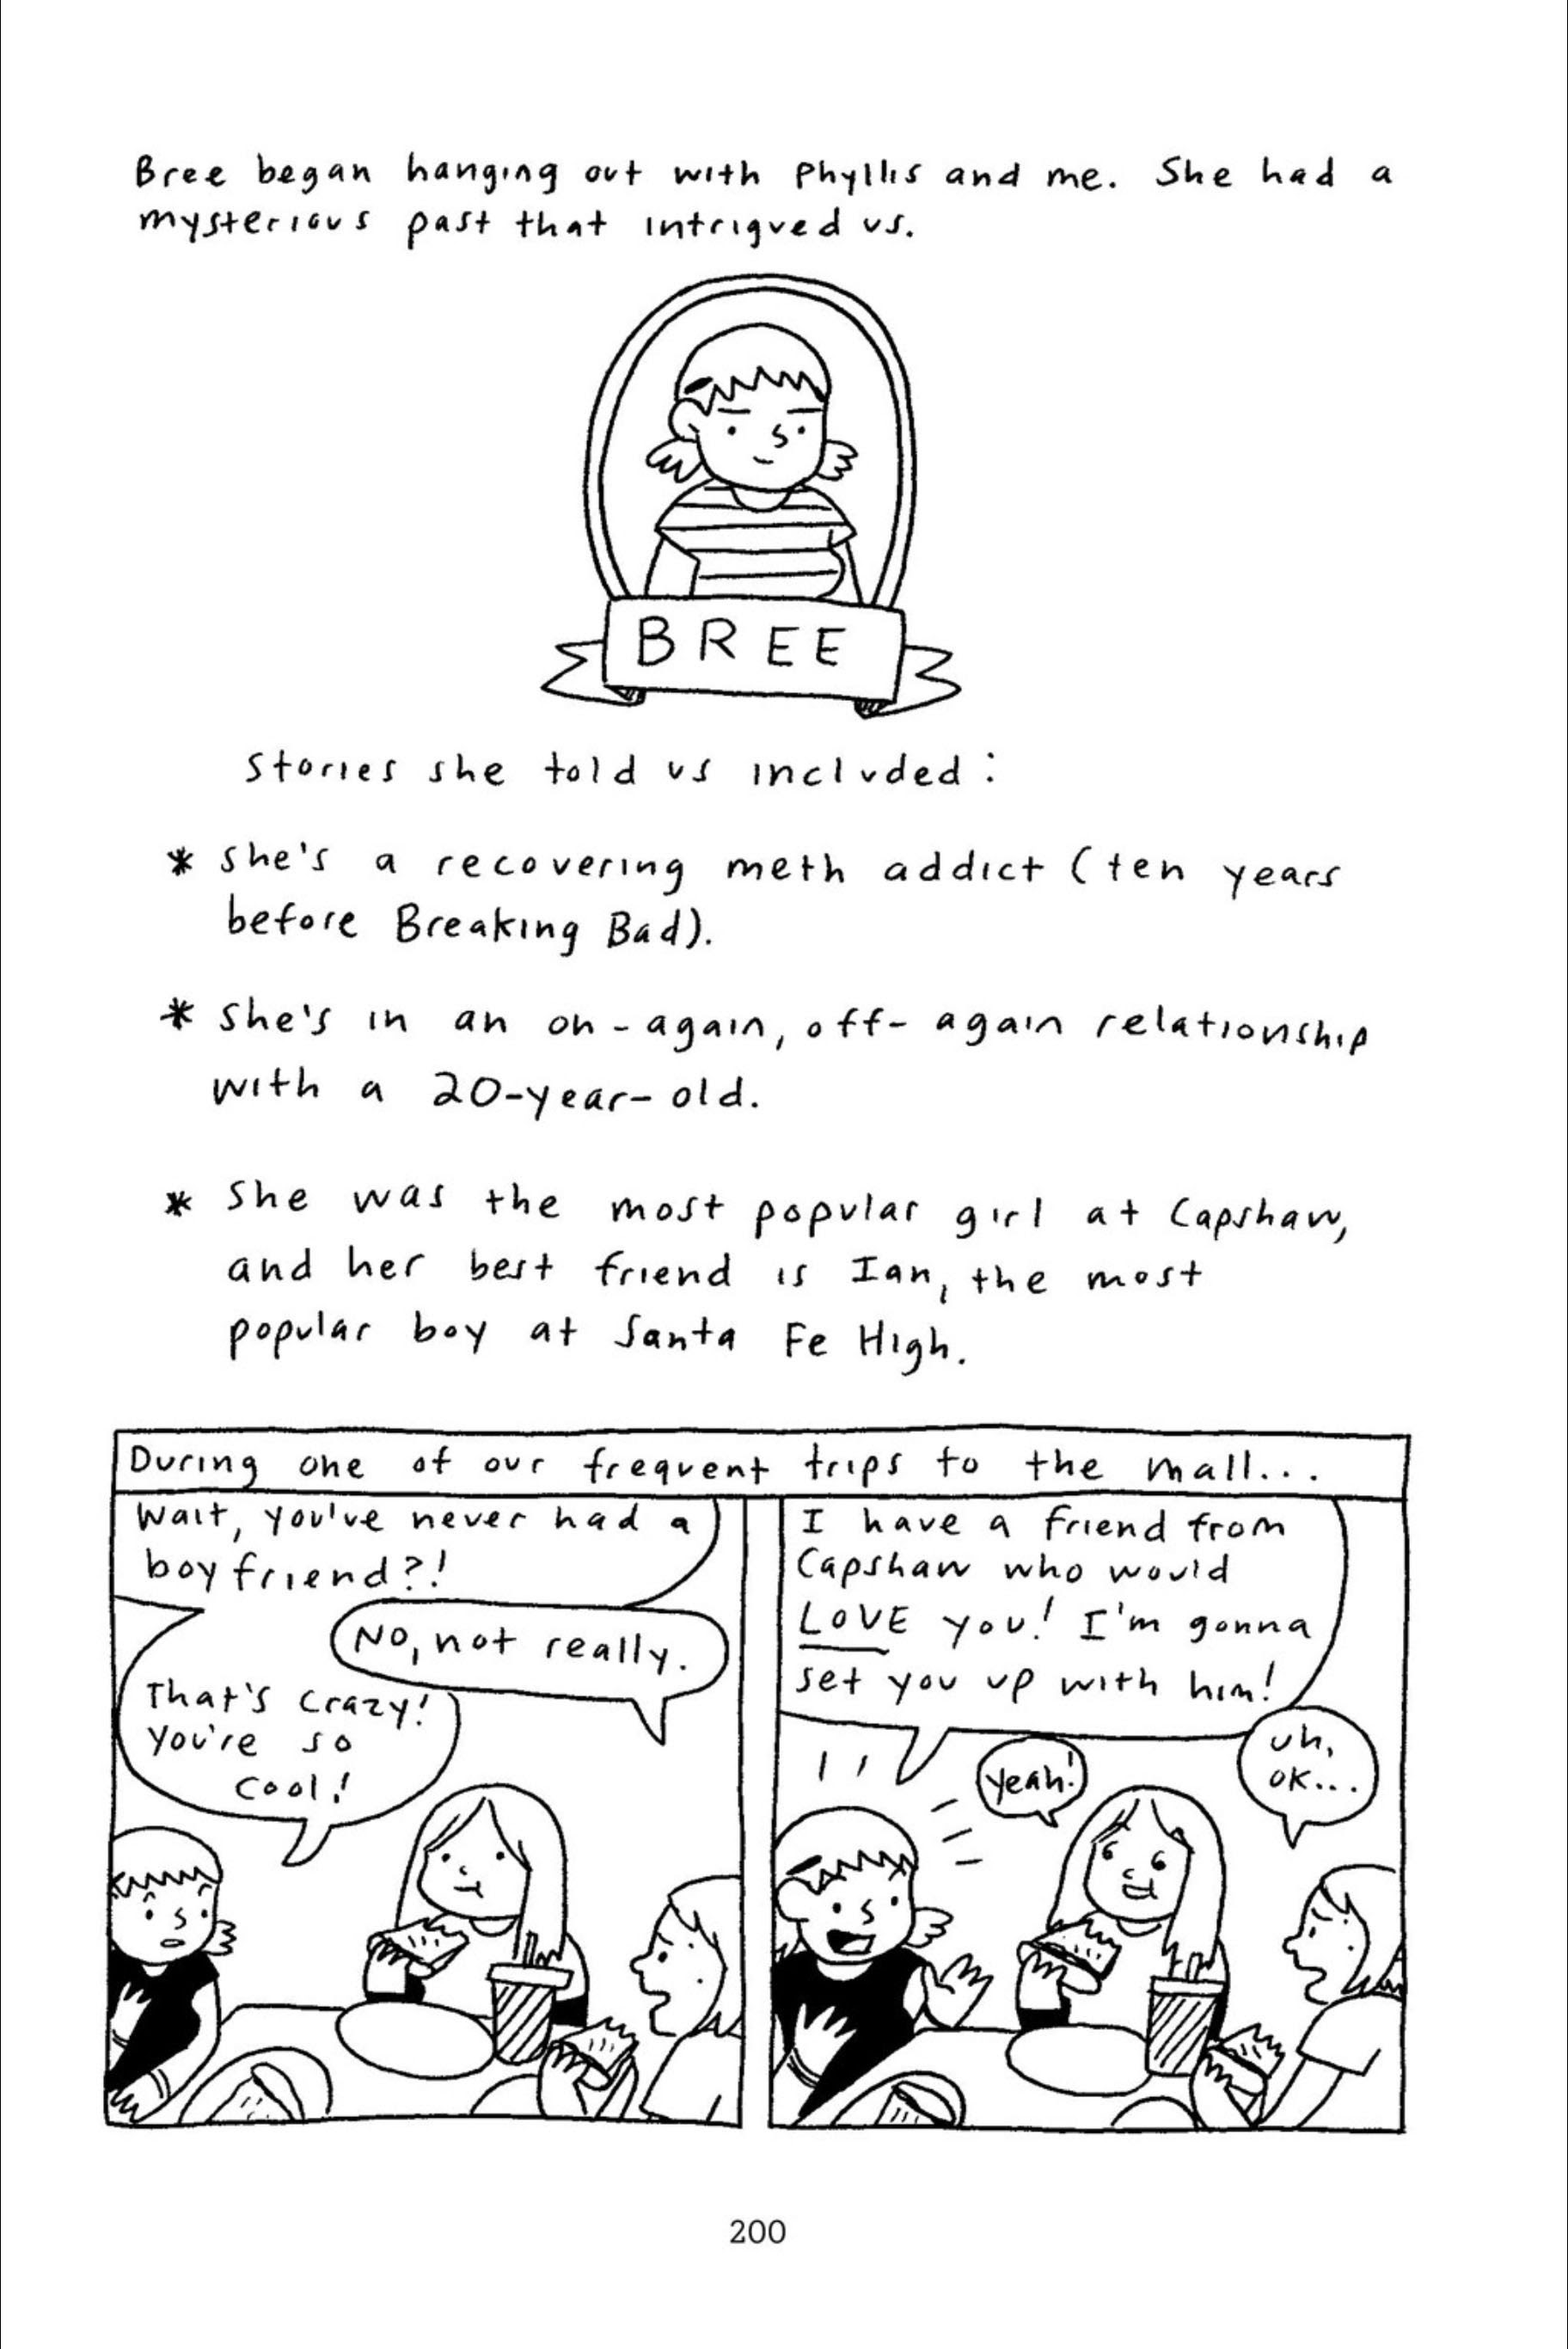 Bree began hanging out with Phyllis and me. She had a
mysterious past that intrigued us.
BREE
Stories she told us included:
* She's a recovering meth addict (ten years
before Breaking Bad).
* She's in an on-again, off-again relationship
with a 20-year-old.
* She was the most popular girl at Capshaw,
and her best friend is Ian, the most
popular boy at Santa Fe High.
During one of our frequent trips to the mall...
Wait, you've never had a
boyfriend?!
No, not really.
That's crazy!
You're so
cool!
I have a friend from
Capshaw who would
LOVE you! I'm gonna
set you up with him!
Yeah!
Uh,
OK...
200